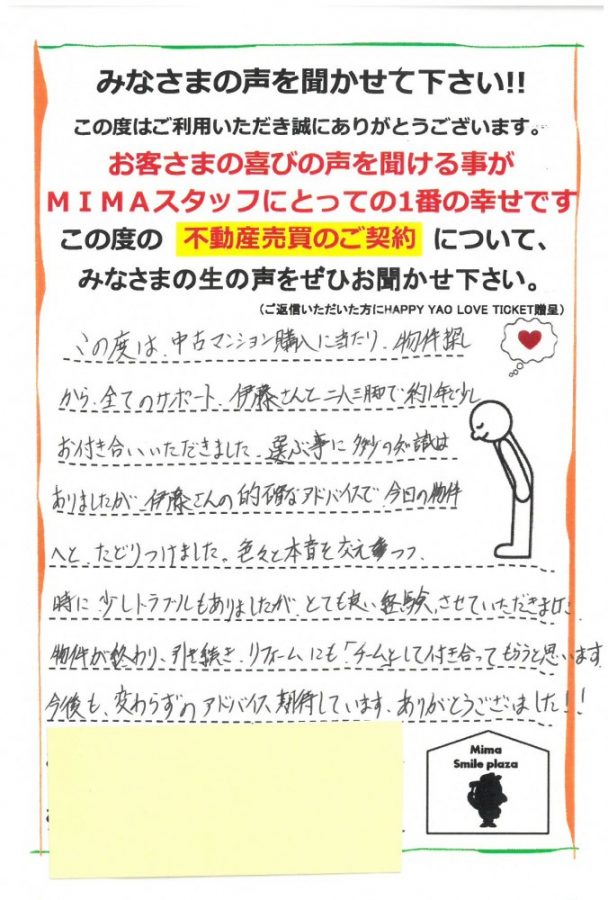 みなさまの声を聞かせて下さい!!
この度はご利用いただき誠にありがとうございます。
お客さまの喜びの声を聞ける事が
MIMAスタッフにとっての1番の幸せです
この度の 不動産売買のご契約 について、
みなさまの生の声をぜひお聞かせ下さい。
(ご返信いただいた方にHAPPY YAO LOVE TICKET贈呈)
この度は、中古マンション購入に当たり、物件探し
から、全てのサポート、伊藤さんと二人三脚で約1年と少し
お付き合いいただきました。選ぶ事に多少の知識は
ありましたが、伊藤さんの的確なアドバイスで、今日の物件
へと、たどりつけました。色々と本音を交えつつ、
時に少しトラブルもありましたが、とても良い経験、させていただきました。
物件が終わり、引き続き、リフォームにも「チーム」として付き合ってもらうと思います
今後も、変わらずのアドバイス、期待しています。ありがとうございました!!
Mima
Smile plaza